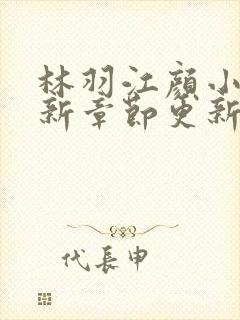 林羽江顔小
新章節更新
代長申